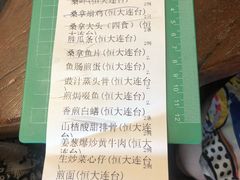 桑拿鸡(恒大连台)
桑拿大头(四食)(恒
大连台)
胜瓜条(恒大连台)
桑拿鱼片(恒大连台)
鱼肠煎蛋(恒大连台)
豉汁蒸头骨(恒大连台)
煎焗啜鱼(恒大连台)
香煎白鳝(恒大连台)
山楂酸甜排骨(恒大连台)
姜葱爆炒黄牛肉(恒大连台)
生炒菜心仔(恒大连台)
煎面(恒大连台)